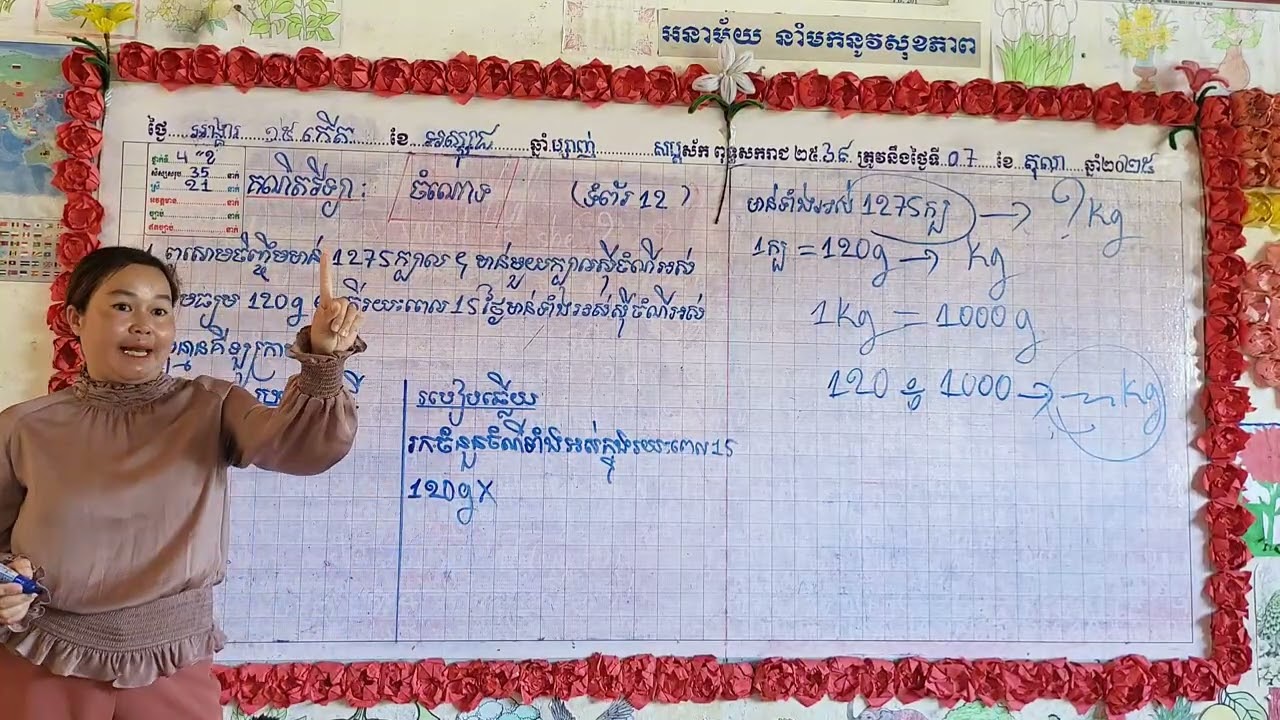 អនាម័យ នាំមកនូវសុខភាព
ថ្ងៃ.....អង្គារ.....១៥ កើត.....ខែ.....អស្សុជ.....ឆ្នាំ ម្សាញ់.....សប្តស័ក ពុទ្ធសករាជ ២៥៦៩ ត្រូវនឹងថ្ងៃទី..07..ខែ..តុលា..ឆ្នាំ២០២៥
ថ្នាក់ទី 4 "ខ"
សិស្សសរុប 35 នាក់
ស្រី 21 នាក់
អវត្តមាន នាក់
ច្បាប់ នាក់
ឥតច្បាប់ នាក់
គណិតវិទ្យា : ចំណោទ (ទំព័រ 12 )
ចិញ្ចឹមមាន់ 1275 ក្បាល ។ មាន់មួយក្បាលស៊ីចំណីអស់
120g រយៈពេល 15 ថ្ងៃមាន់ទាំងអស់ស៊ីចំណីអស់
ប៉ុន្មានគីឡូក្រាម
របៀបឆ្លើយ
រកចំនួនចំណីទាំងអស់ក្នុងរយៈពេល 15
120g X
មាន់ទាំងអស់ 1275 ក្ប → ? Kg
1ក្ប = 120g → Kg
1Kg = 1000 g
120 ÷ 1000 → Kg